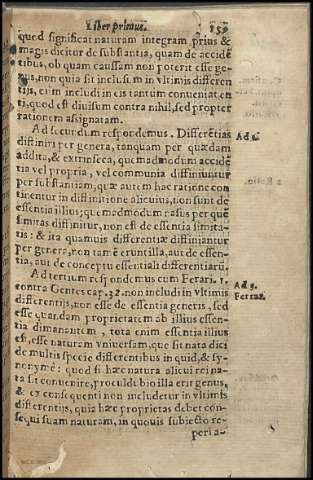 Liber primus. 159
quod significat naturam integram prius &
magis dicitur de substantia, quam de accidē
tibus, ob quam caussam non poterit esse ge-
nus, non quia sit inclusum in vltimis differen
tijs, cum includi in eis tantum conueniat en
ti, quod est diuisum contra nihil, sed propter
rationem assignatam.
Ad secundum respondemus. Differētias Ad 2.
distiniri per genera, tanquam per quædam
addita, & extrinseca, quemadmodum accidē
tia vel propria, vel communia diffiniuntur
per substantiam, quæ autem hac ratione con
tinentur in diffinitione alicuius, non sunt de
essentia illius; quemadmodum nasus per quē
simitas diffinitur, non est de essentia simita-
tis: & ita quamuis differentiæ diffiniantur
per genera, non tamē erunt illa, aut de essen-
tia, aut de conceptu essentiali differentiarū.
Ad tertium respondemus cum Ferari. 1. Ad 3.
contra Gentes cap. 32. non includi in vltimis Ferrar.
differentijs, non esse de essentia generis, sed
esse quandam proprietatem ab illius essen-
tia dimanantem, tota enim essentia illius
est, esse naturam vniuersam, que sit nata dici
de multis specie differentibus in quid, & sy-
nonymè: quod si hæc natura alicui rei na-
ta sit conuenire, proculdubio illa erit genus,
& ex consequenti non includetur in vltimis
differentijs, quia hæc proprietas debet con-
sequi suam naturam, in quouis subiecto re-
peria-